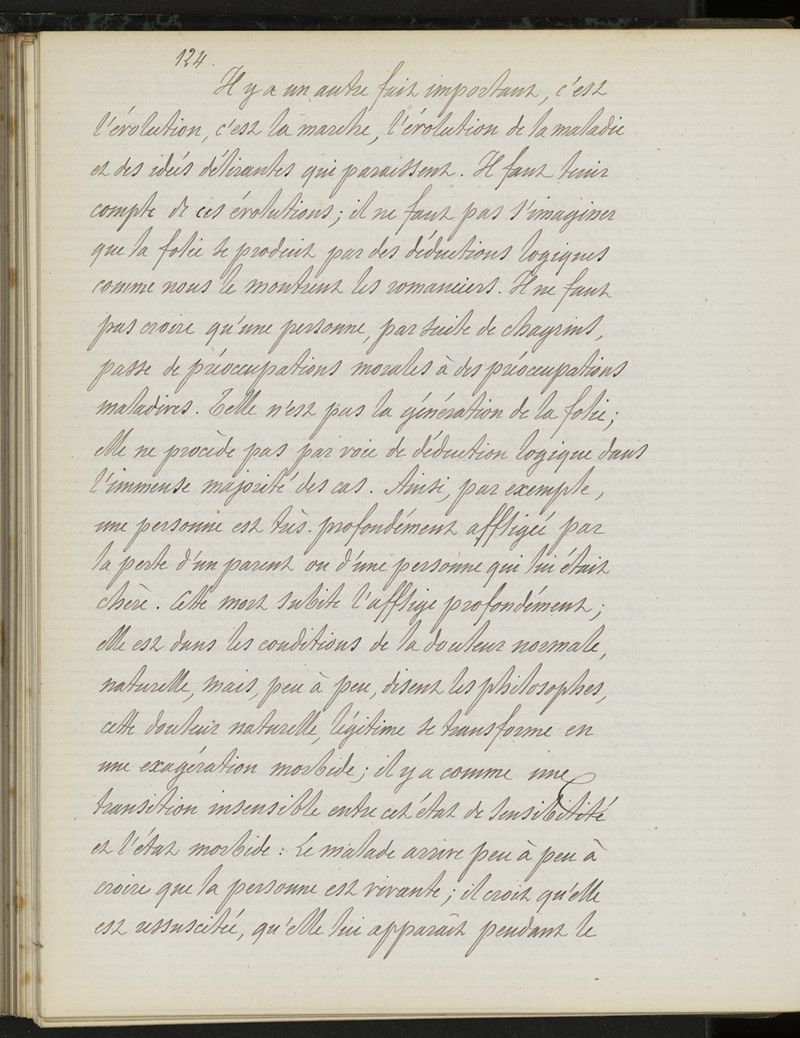 124.
Il y a un autre fait important, c'est
l'évolution, c'est la marche, l'évolution de la maladie
et des idées délirantes qui paraissent. Il faut tenir
compte de ces évolutions; il ne faut pas s'imaginer
que la folie se produit par des déductions logiques
comme nous le montrent les romanciers. Il ne faut
pas croire qu'une personne, par suite de chagrins,
passe de préoccupations morales à des préoccupations
maladives. Telle n'est pas la génération de la folie;
elle ne procède pas par voie de déduction logique dans
l'immense majorité des cas. Ainsi, par exemple,
une personne est très-profondément affligée par
la perte d'un parent ou d'une personne qui lui était
chère. Cette mort subite l'afflige profondément;
elle est dans les conditions de la douleur normale,
naturelle, mais, peu à peu, disent les philosophes,
cette douleur naturelle, légitime se transforme en
une exagération morbide; il y a comme une
transition insensible entre cet état de sensibilité
et l'état morbide: Le malade arrive peu à peu à
croire que la personne est vivante; il croit qu'elle
est ressuscitée, qu'elle lui apparaît pendant le